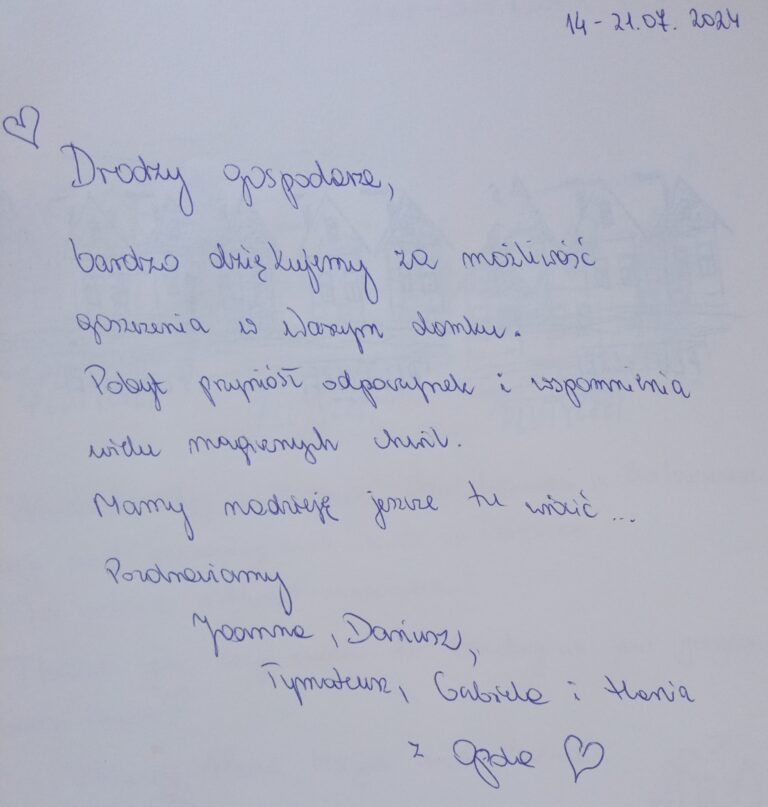 14 - 21.07. 2024
Drodzy gospodarze,
bardzo dziękujemy za możliwość
goszczenia w Waszym domku.
Pobyt przyniósł odpoczynek i wspomnienia
wielu magicznych chwil.
Mamy nadzieję jeszcze tu wrócić ...
Pozdrawiamy
Joanna, Dariusz,
Tymoteusz, Gabriela i Hania
z